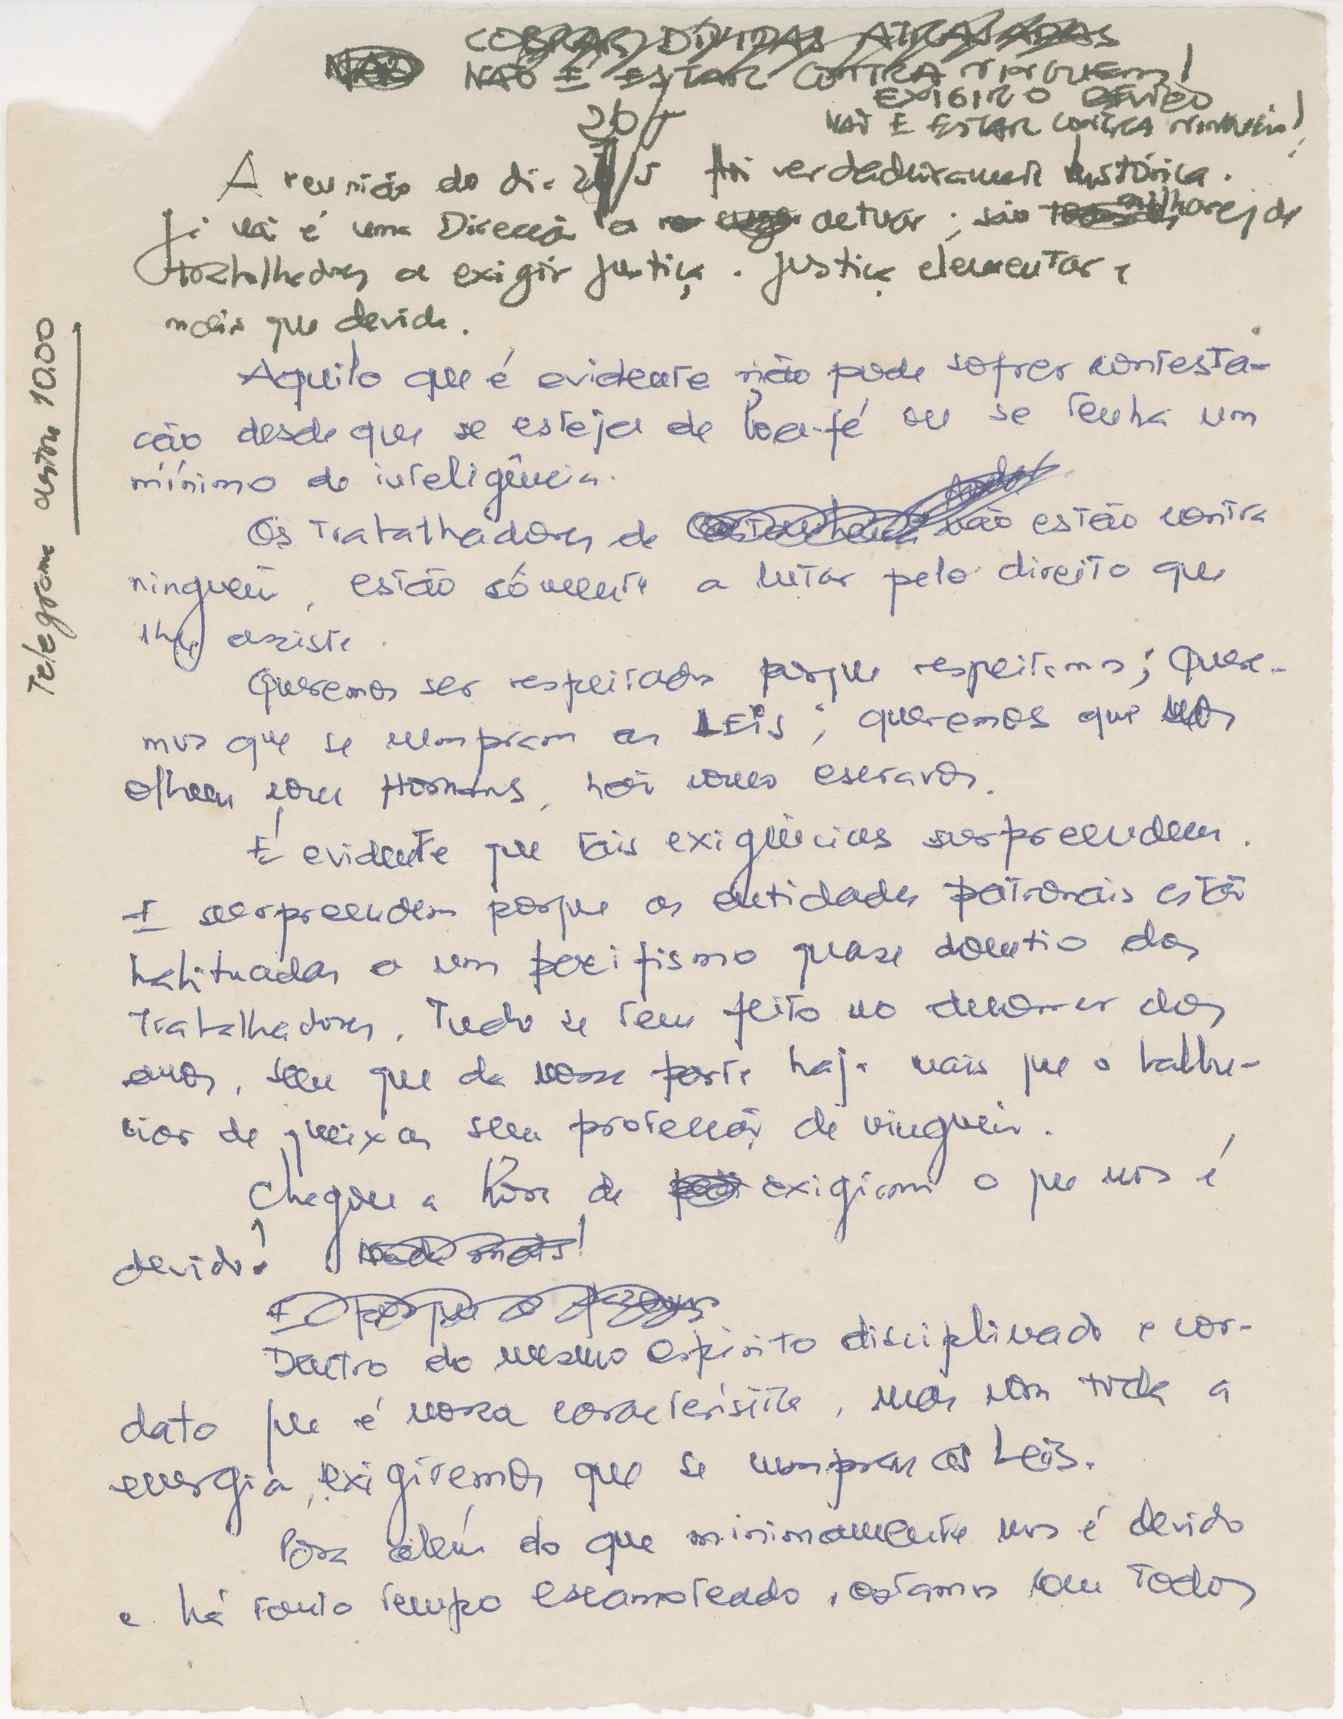 COBRAR DIVIDAS ATRASADAS
NÃO NÃO É ESTAR CONTRA NINGUEM!
EXIGIR O DEVIDO
NÃO É ESTAR CONTRA NINGUEM!
26/5
A reunião do dia /5 foi verdadeiramente histórica.
Já não é uma Direcção a actuar; são milhares de
trabalhadores a exigir justiça. Justiça elementar e
mais que devida.
Aquilo que é evidente não pode sofrer contesta-
ção desde que se esteja de boa-fé ou se tenha um
mínimo de inteligência.
Os trabalhadores de não estão contra
ninguém, estão sómente a lutar pelo direito que
lhes assiste.
Queremos ser respeitados porque respeitamos; quere-
mos que se cumpram as LEIS; queremos que nos
olhem como Homens, não como escravos.
É evidente que tais exigências surpreendem.
E surpreendem porque as entidades patronais estão
habituadas a um pacifismo quase doentio dos
trabalhadores. Tudo se tem feito no decorrer dos
anos, sem que da nossa parte haja mais que o balbu-
ciar de queixas sem protecção de ninguém.
Chegou a hora de exigirmos o que nos é
devido! Nada mais!
Dentro do mesmo espírito disciplinado e cor-
dato que é nossa característica, mas com toda a
energia, exigiremos que se cumpram as Leis.
Para além do que minimamente nos é devido
e há tanto tempo escamoteado, estamos com todos
Telegrama 10.00